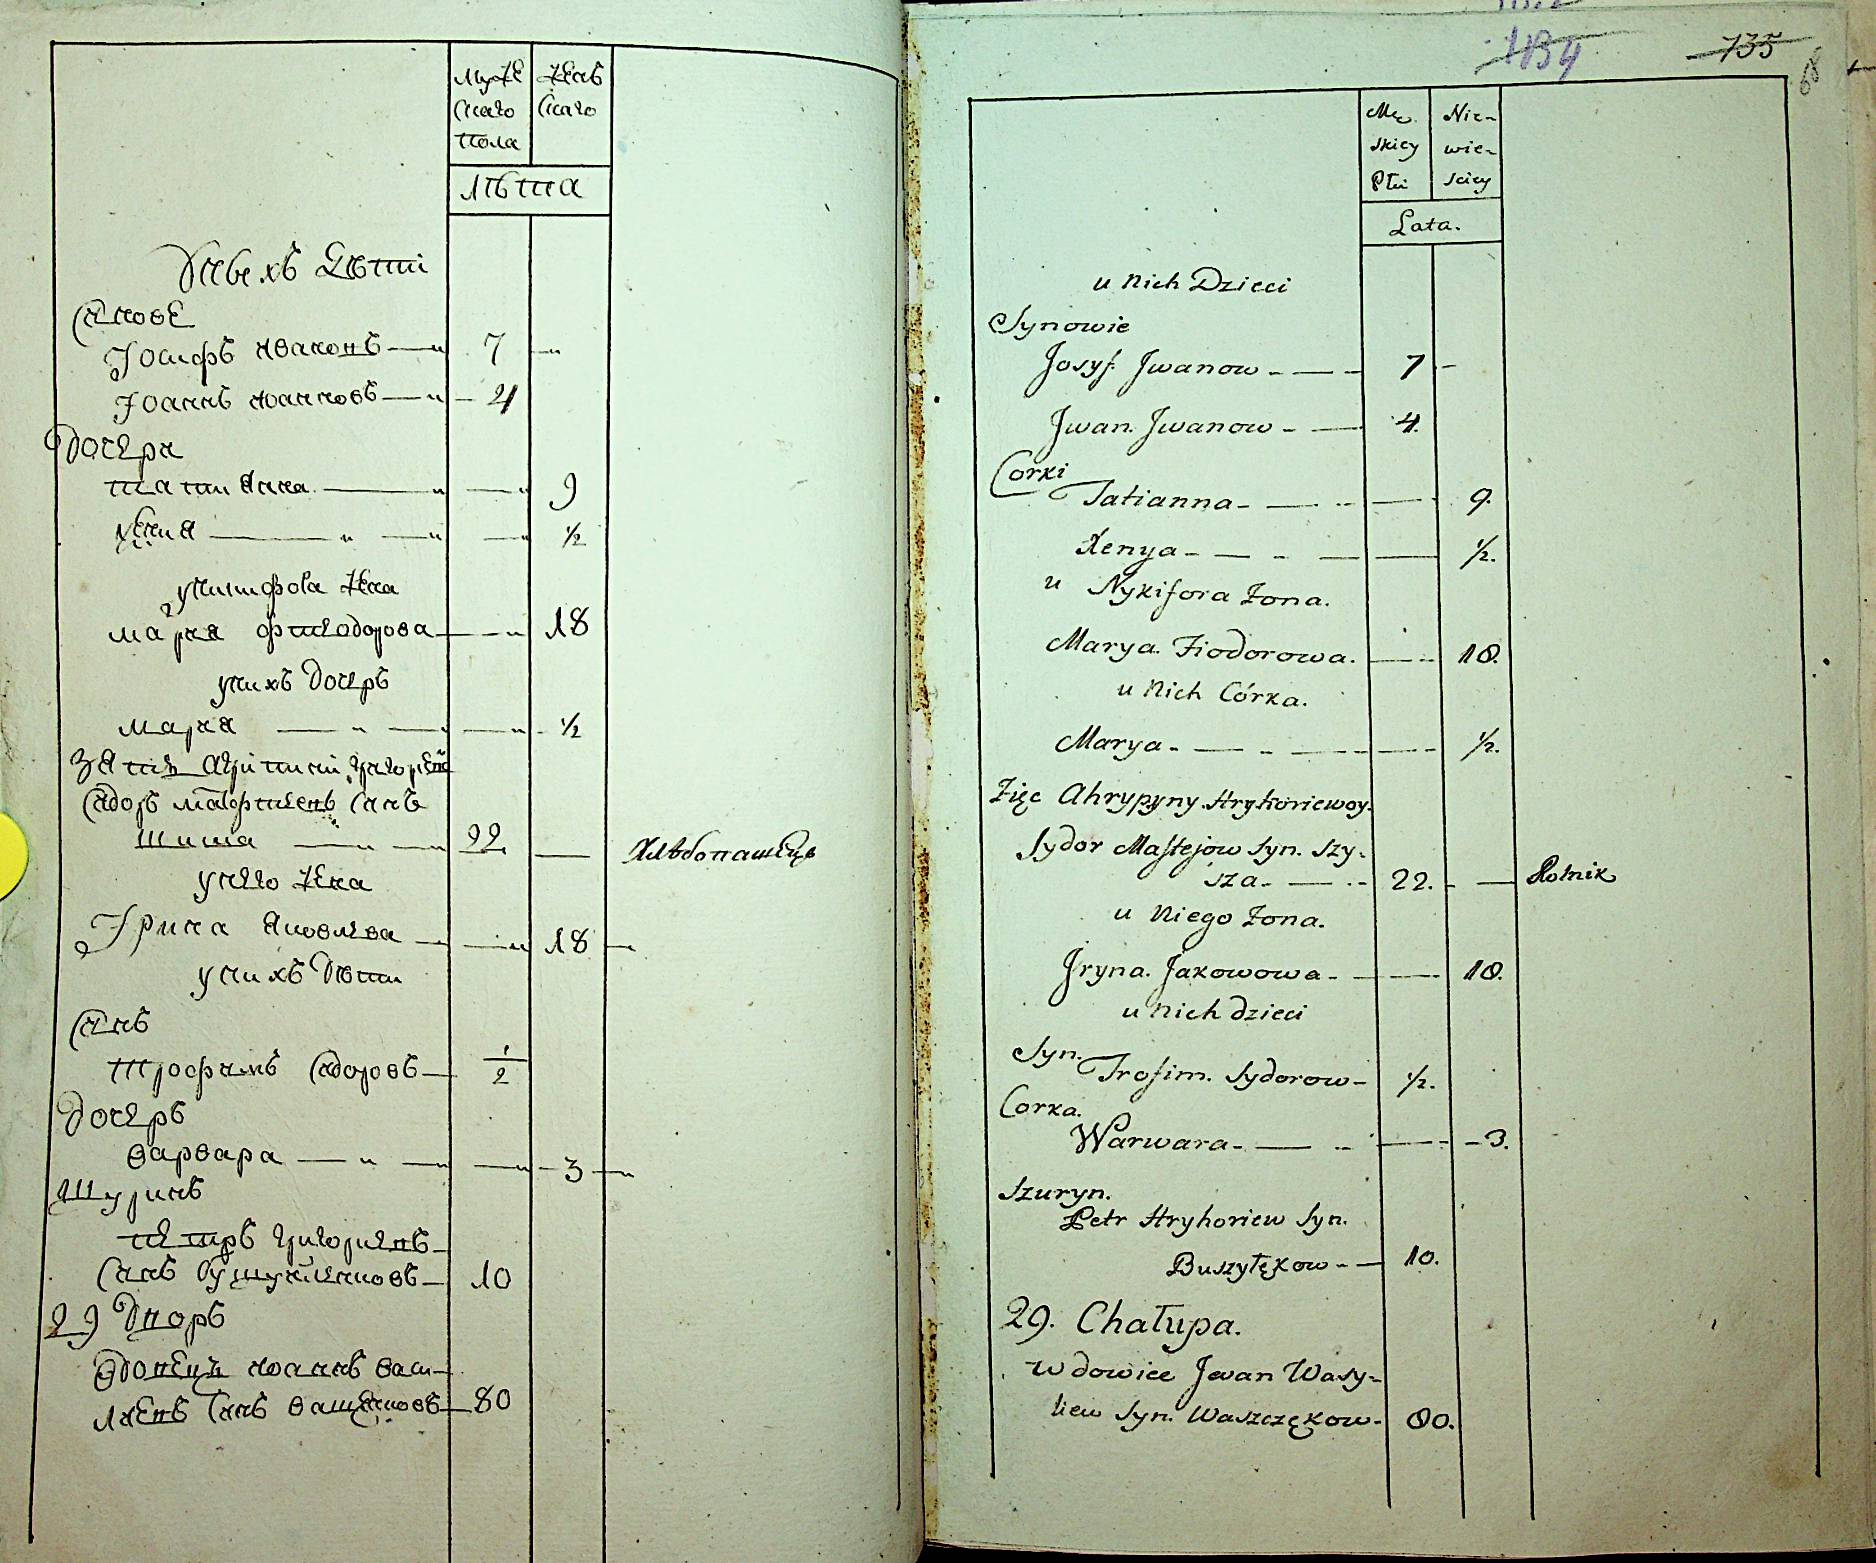 Муже
скаго
пола
Женъ
скаго
лѣта
У него дѣти
Сынове
Іосифъ Ивановъ 7
Іоаннъ Іоанновъ 4
Дочери
татиѧна 9
ѯениѧ 1/2
у никифора жена
мариѧ фтеодорова 18
у нихъ дочерь
мариѧ 1/2
Сидоръ матфтиевъ синъ
шиша 22 Хлѣбопашецъ
у него жена
Ірина Ѧковлева 18
у нихъ дѣти
Синъ
трофимъ Сидоровъ 1/2
Дочерь
варвара 3
Шуринъ
петръ григориевъ
синъ 10
29 Дворъ
вдовецъ іоаннъ васи-
лиевъ синъ ващенковъ 80
134 735
68
Mę.
skiey
Płci
Nie-
wie-
sciey
Lata.
u Nich Dzieci
Synowie
Josyf. Jwanow 7
Jwan. Jwanow 4.
Corki
Tatianna 9.
Xenya 1/2.
u Nykifora Żona.
Marya. Fiodorowa. 18.
u Nich Córka.
Marya 1/2.
Zięc Ahrypyny Hryhoriewoy.
Sydor Mastejow Syn. Szy-
sza 22. Rolnik
u Niego Żona.
Jryna. Jakowowa 18.
u Nich dzieci
Syn.
Trofim. Sydorow 1/2.
Corka.
Warwara 3.
Szuryn.
Petr Hryhoriew Syn.
Buszyłękow 10.
29. Chałupa.
wdowiec Jwan Wasy-
liew Syn. Waszczękow 80.